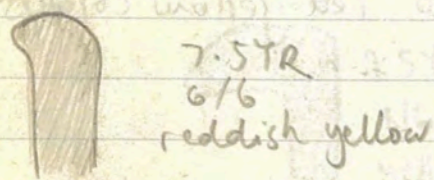 7.5YR
6/6
reddish yellow